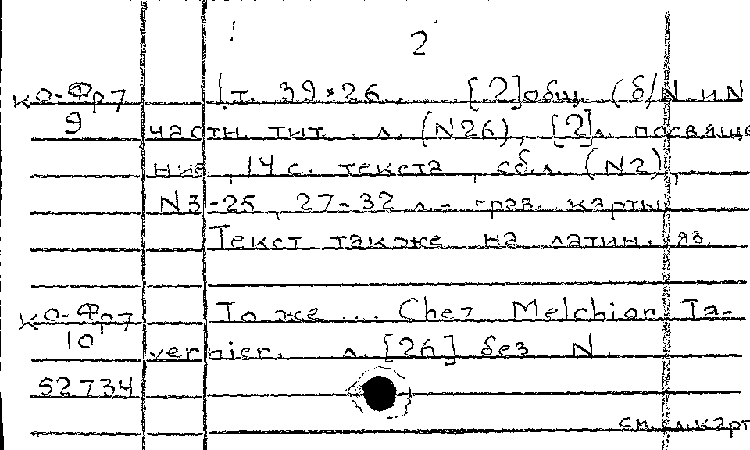 2
Ко-Фр7 1т. 39×26. [2] общ. (б/N и N
9 частн. тит. л. (N26), [2] л. посвяще
ние, 14 с. текста, сб.л. (N2),
N3-25, 27-32 л.- грав. карты
Текст также на латин. яз.
Ко-Фр7 То же ... Chez Melchior Ta-
10 vernier. л. [26] без N
52734
см. сл. карт